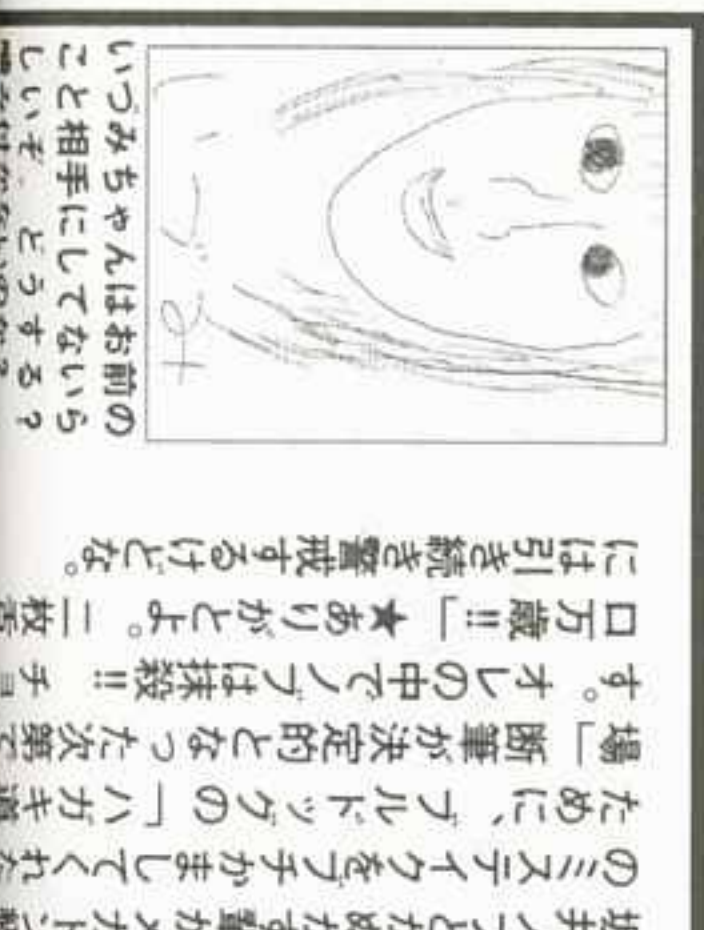 いづみちゃんはお前の
こと相手にしてないら
しいぞ。どうする?
のミステイクをブチかましてくれた
ために、ブルドックの「ハガキ道
場」断筆が決定的となった次第で
す。オレの中でノブは抹殺!! チョ
ロ万歳!!」★ありがとよ。二枚舌
には引き続き警戒するけどな。